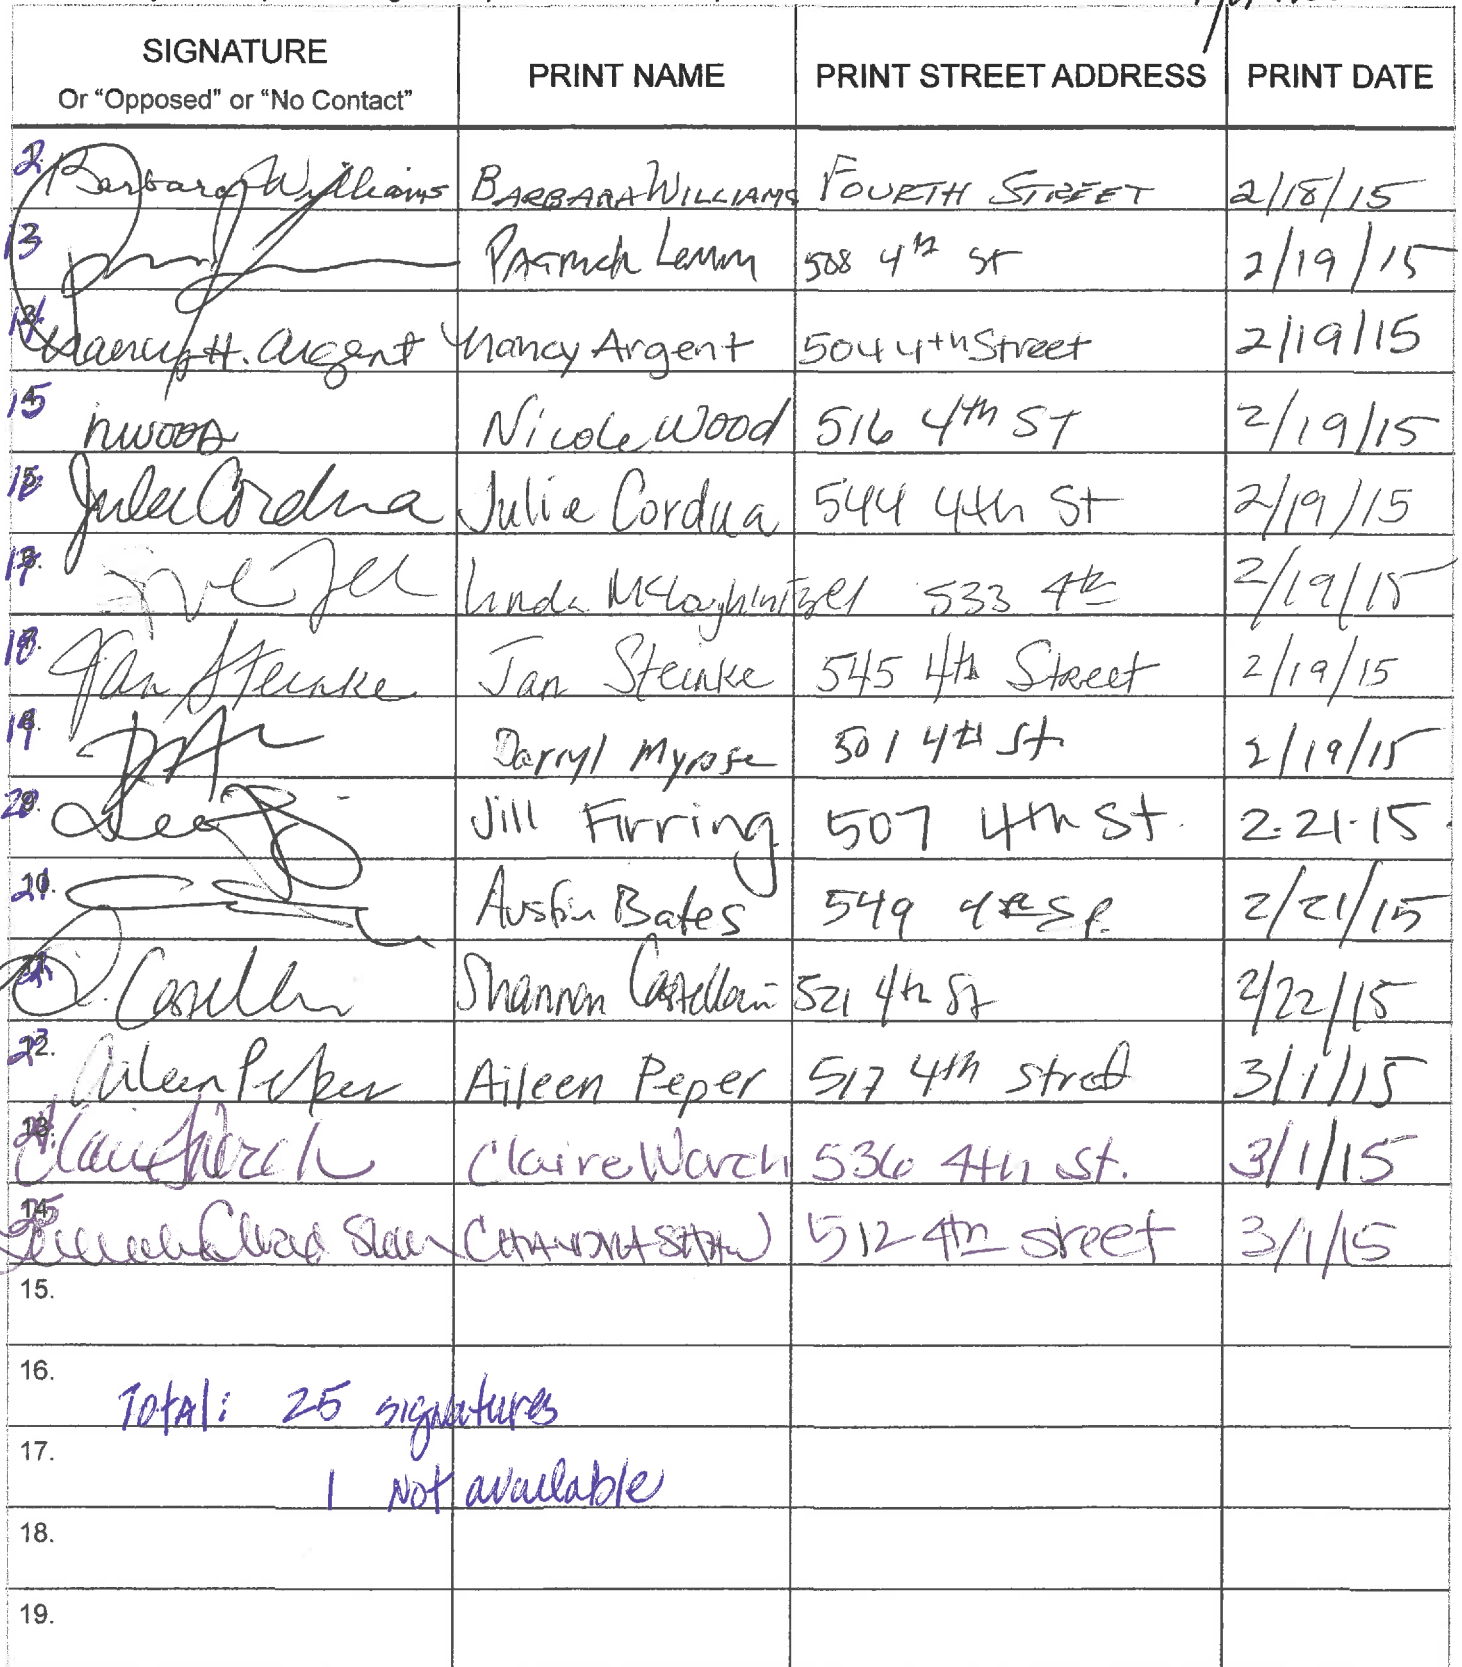 SIGNATURE
Or "Opposed" or "No Contact"
PRINT NAME
PRINT STREET ADDRESS
PRINT DATE
Barbara Williams BARBARA WILLIAMS FOURTH STREET 2/18/15
13 508 4th St 2/19/15
14 Nancy H. Argent Nancy Argent 504 4th Street 2/19/15
15 nwood Nicole Wood 516 4th ST 2/19/15
16 Julie Cordua Julie Cordua 544 4th St 2/19/15
17 Linda 533 4th 2/19/15
18 Jan Steinke Jan Steinke 545 4th Street 2/19/15
19 Darryl Myrose 501 4th St 2/19/15
20 Jill Firring 507 4th St. 2.21.15
21 Austin Bates 549 4th 2/21/15
Shannon 521 4th St 2/22/15
23 Aileen Peper Aileen Peper 517 4th Street 3/1/15
Claire Worch Claire Worch 536 4th St. 3/1/15
25 Shaw CHANDNA SHAW 512 4th street 3/1/15
15.
16.
Total: 25 signatures
17.
1 Not available
18.
19.